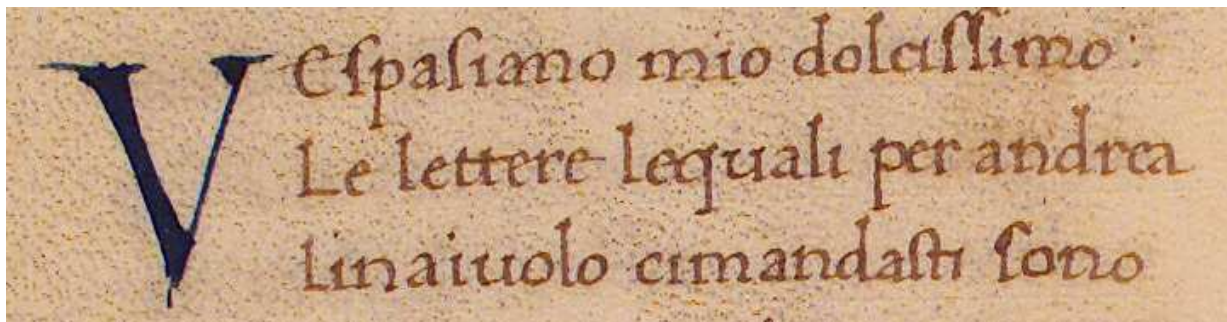 VEſpaſiano mio dolciſſimo:
Le lettere lequali per andrea
linaiuolo cimandaſti ſono